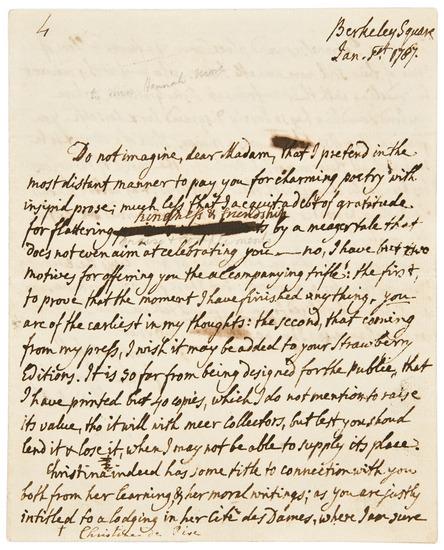 4
Berkeley Square
Jan. 1st 1787.
to Miss Hannah More
Do not imagine, dear Madam, that I pretend in the
most distant manner to pay you for charming poetry with
insipid prose; much less that I acquit a debt of gratitude
kindness & friendship
for flattering by a meagre tale that
does not even aim at celebrating you — no, I have but two
motives for offering you the accompanying trifle: the first,
to prove that the moment I have finished anything, you
are of the earliest in my thoughts: the second, that coming
from my press, I wish it may be added to your Strawberry
Editions. It is so far from being designed for the Public, that
I have printed but 40 copies, which I do not mention to raise
its value, tho it will with meer Collectors, but lest you should
lend it & lose it, when I may not be able to supply its place.
Christina indeed has some title to connection with you
both from her learning & her moral writings; as you are justly
intitled to a lodging in her Cité des Dames, where I am sure
† Christine de Pise